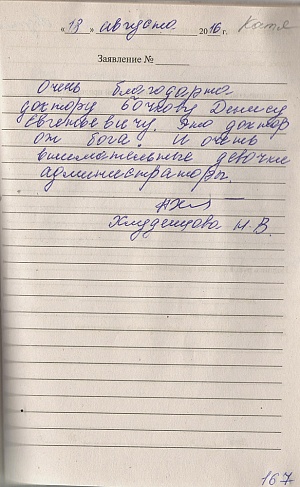 « 13 » августа 2016 г. Катя
Заявление №
Очень благодарна
доктору Бочкову Денису
Евгеньевичу. Это доктор
от бога! И очень
внимательные девочки
администраторы.
Н.В.
167